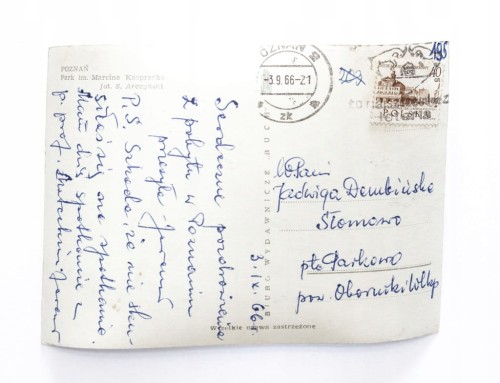 POZNAŃ
Park im. Marcina Kasprzaka
fot. B.
POZNAŃ 2
-3.9.66-21
zk
195
40
POLSKA
Serdeczne pozdrowienia
z pobytu w Poznaniu
przesyła
3.IX.66 r.
P.S. Szkoda, że nie
się na spotkanie
dziś spotkanie z
p. prof.
BIURO WYDAWNICZE RUCH
WPani
Jadwiga Dembińska
Słomowo
pta Parkowo
pow. Oborniki Wlkp
Wszelkie prawa zastrzeżone